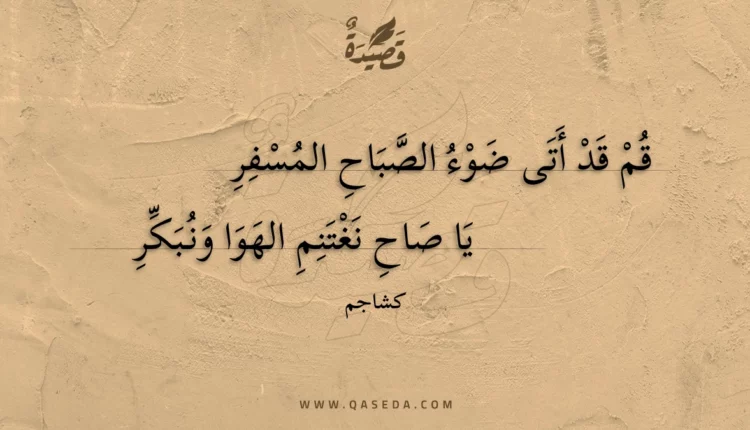 قَصِيدَةٌ
قُمْ قَدْ أَتَى ضَوْءُ الصَّبَاحِ المُسْفِرِ
يَا صَاحِ نَغْتَنِمِ الهَوَا وَنُبَكِّرِ
كشاجم
WWW.QASEDA.COM